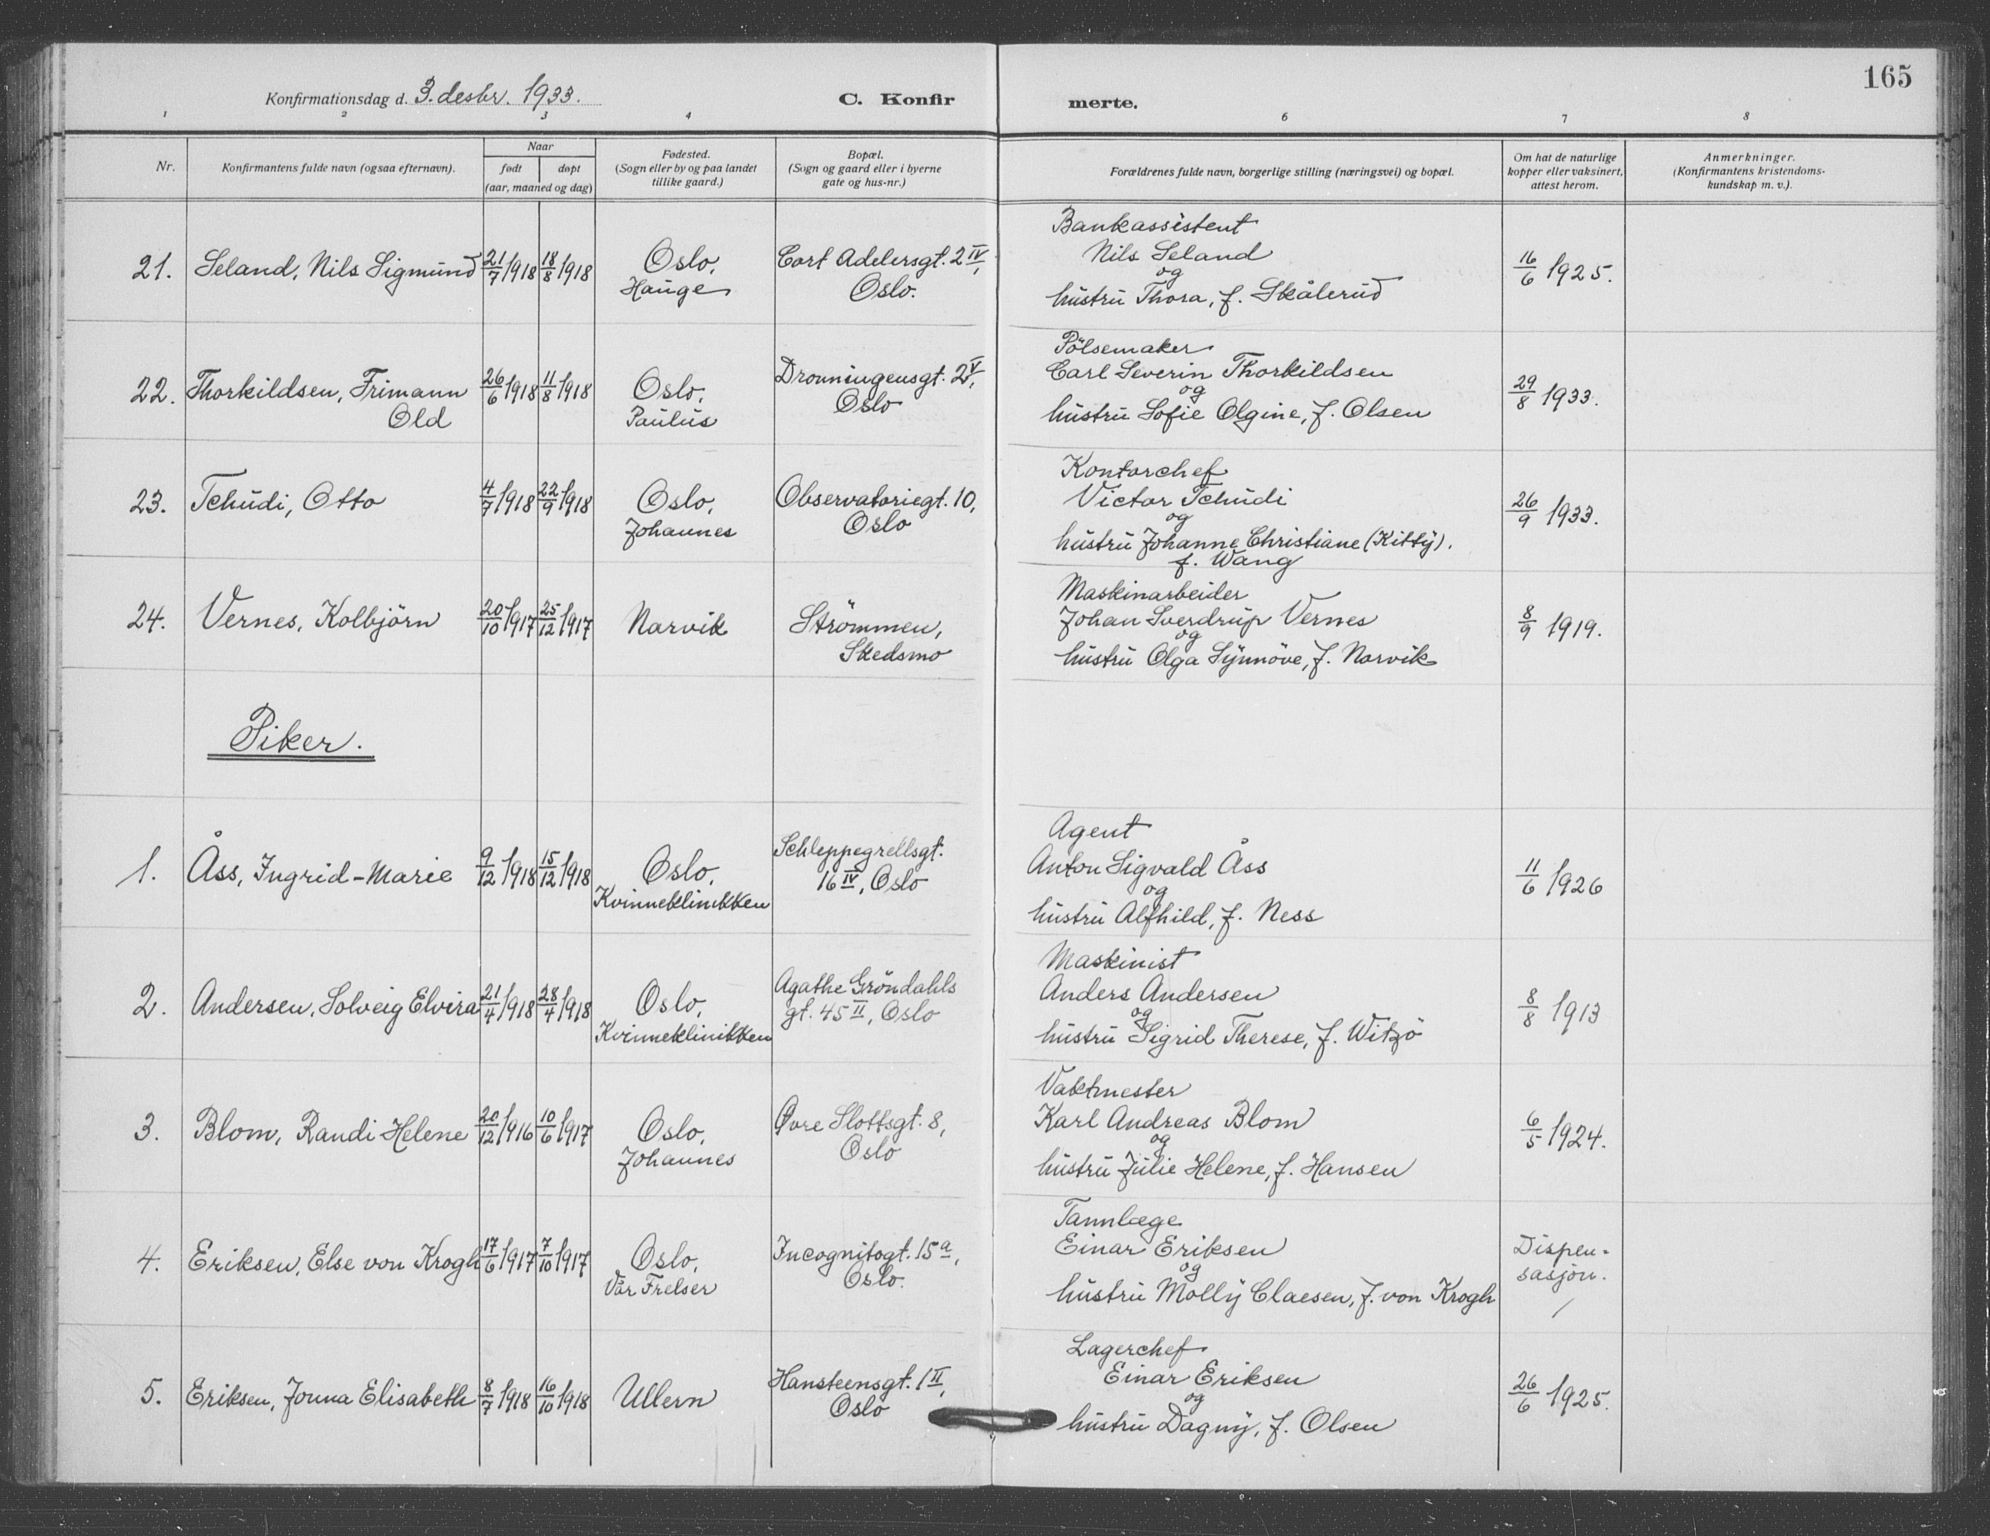 165
Konfirmationsdag d. 3. desbr. 1933. C. Konfir merte.
1 2 3 4 6 7 8
Nr. Konfirmantens fulde navn (ogsaa efternavn). Naar født døpt (aar, maaned og dag) Fødested. (Sogn eller by og paa landet tillike gaard.) Bopæl. (Sogn og gaard eller i byerne gate og hus-nr.) Forældrenes fulde navn, borgerlige stilling (næringsvei) og bopæl. Om hat de naturlige kopper eller vaksinert, attest herom. Anmerkninger. (Konfirmantens kristendoms-kundskap m. v.).
21. Seland, Nils Sigmund 21/7 1918 18/8 1918 Oslo, Hauge Cort Adelersgt. 2 IV, Oslo.
Bankassistent
Nils Seland
og
hustru Thora, f. Skålerud
16/6 1925.
22. Thorkildsen, Frimann Old 26/6 1918 11/8 1918 Oslo, Paulus Dronningensgt. 2 V, Oslo
Pölsemaker
Carl Severin Thorkildsen
og
hustru Sofie Olgine, f. Olsen
29/8 1933.
23. Tchudi, Otto 4/7 1918 22/9 1918 Oslo, Johannes Observatoriegt. 10, Oslo
Kontorchef
Victor Tchudi
og
hustru Johanne Christiane (Kitty).
f. Wang
26/9 1933.
24. Vernes, Kolbjörn 20/10 1917 25/12 1917 Narvik Strömmen, Skedsmo
Maskinarbeider
Johan Sverdrup Vernes
og
hustru Olga Synnöve, f. Narvik
8/9 1919.
Piker.
1. Åss, Ingrid-Marie 9/12 1918 15/12 1918 Oslo, Kvinneklinikken Schleppegrellsgt. 16 IV, Oslo
Agent
Anton Sigvald Åss
og
hustru Alfhild, f. Ness
11/6 1926
2. Andersen, Solveig Elvira 21/4 1918 28/4 1918 Oslo, Kvinneklinikken Agathe Gröndahls gt. 45 II, Oslo
Maskinist
Anders Andersen
og
hustru Sigrid Therese, f. Witzö
8/8 1913
3. Blom, Randi Helene 20/12 1916 10/6 1917 Oslo, Johannes Øvre Slottsgt. 8, Oslo
Vaktmester
Karl Andreas Blom
og
hustru Julie Helene, f. Hansen
6/5 1924.
4. Eriksen, Else von Krogh 17/6 1917 7/10 1917 Oslo, Vår Frelser Incognitogt. 15 a, Oslo.
Tannlæge
Einar Eriksen
og
hustru Molly Claesen, f. von Krogh
Dispen-
sasjon.
5. Eriksen, Jonna Elisabeth 8/7 1918 16/10 1918 Ullern Hansteensgt. 1 II, Oslo
Lagerchef
Einar Eriksen
og
hustru Dagny, f. Olsen
26/6 1925.